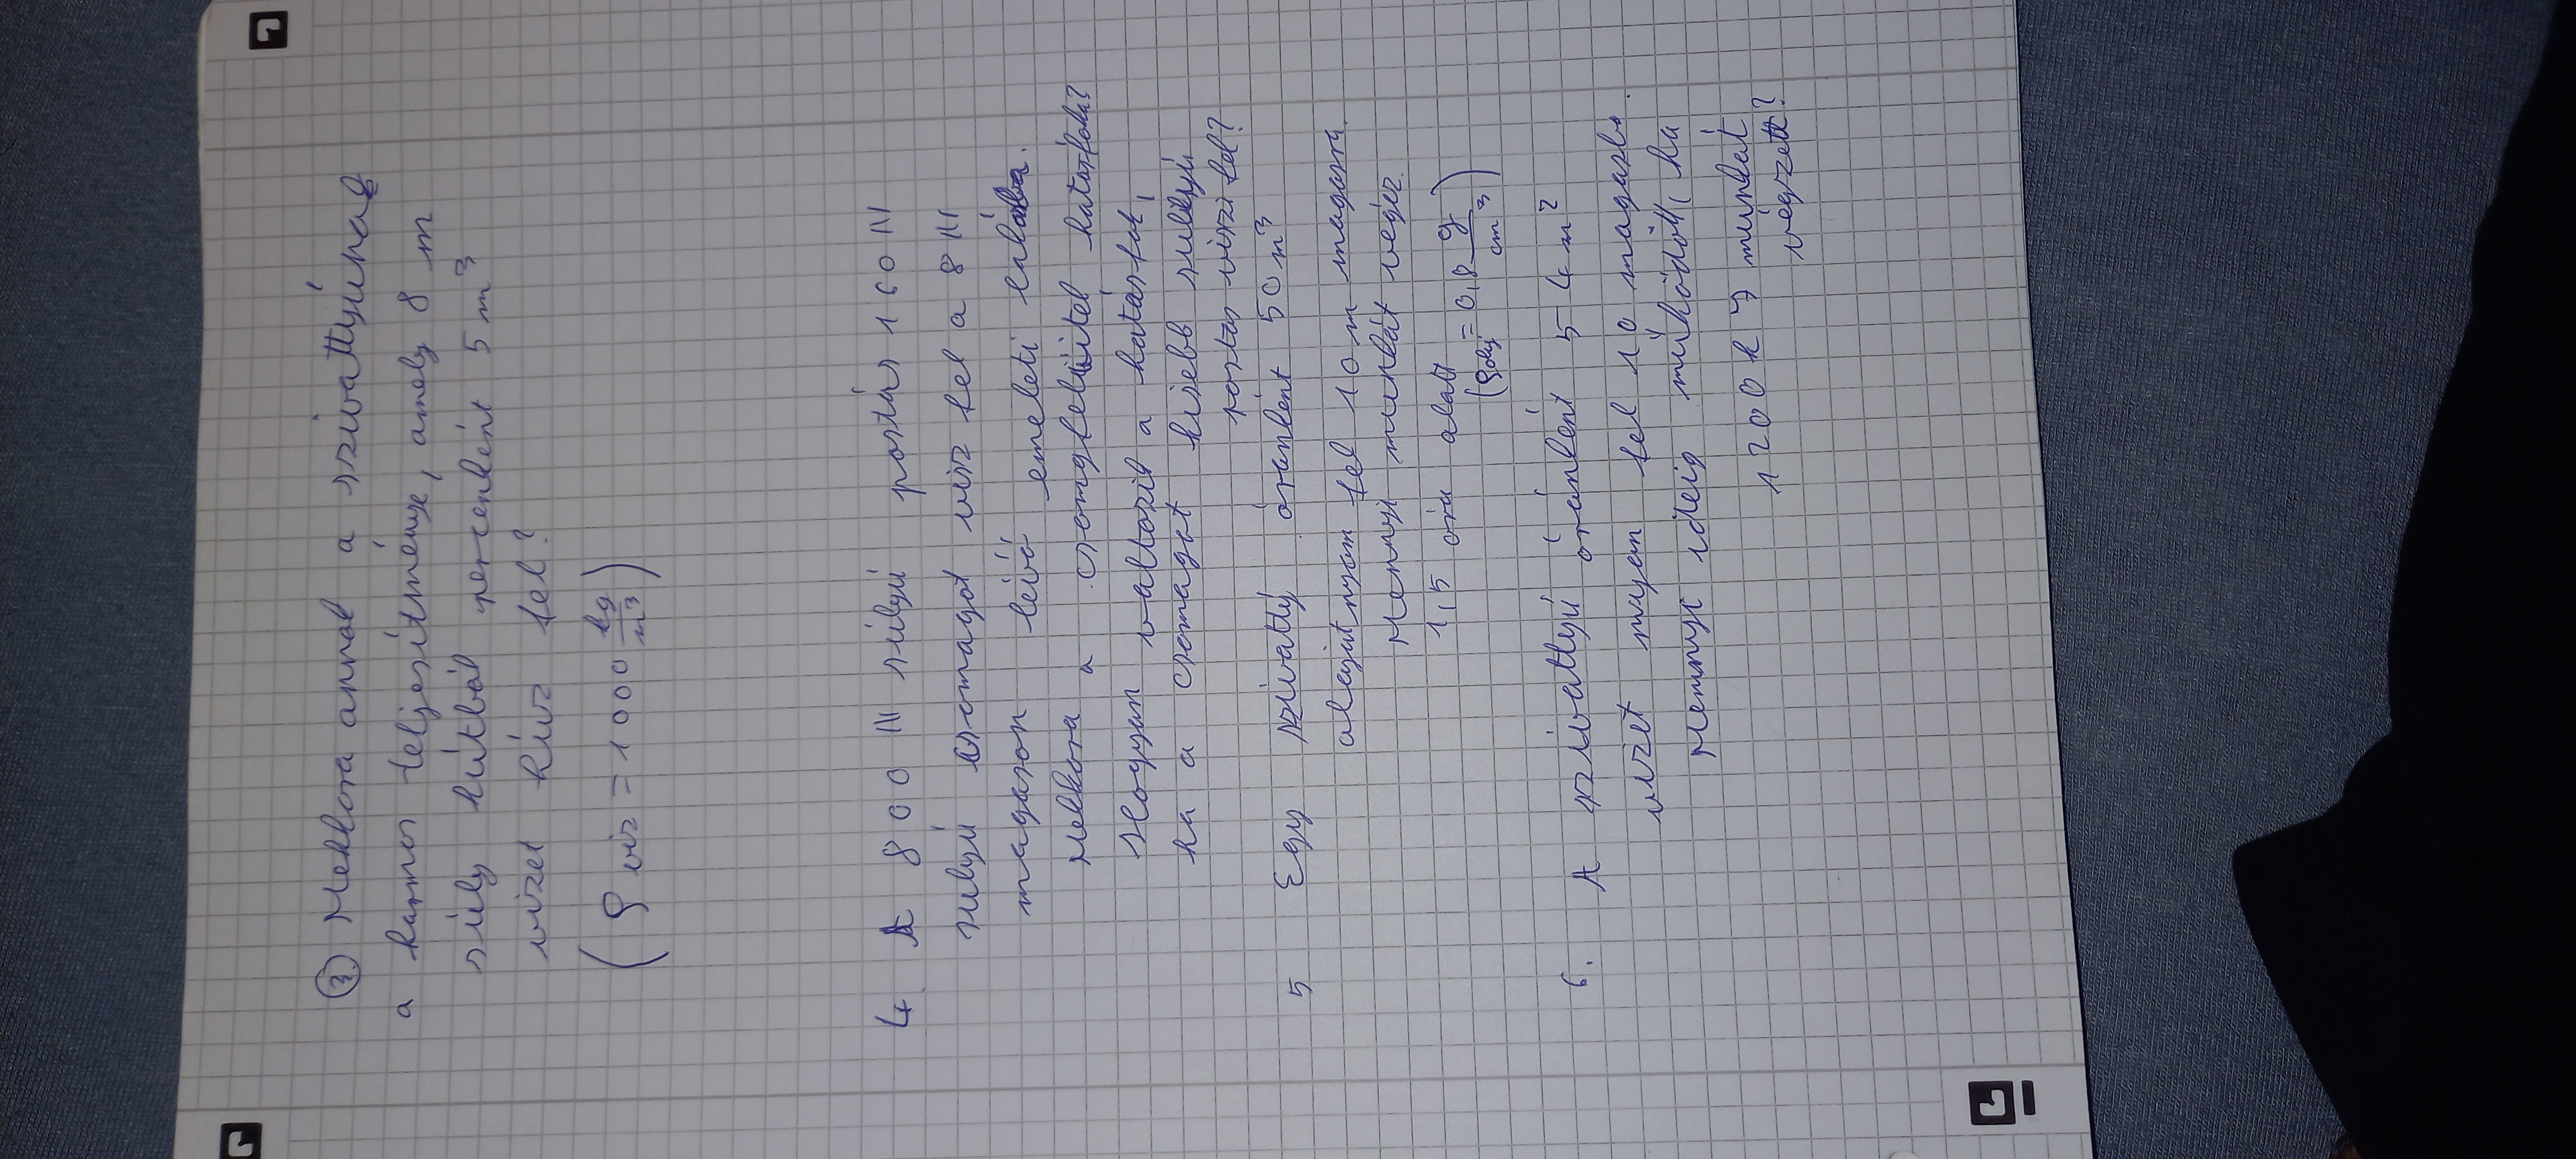 ③ Mekkora annak a szivattyúnak
a hasznos teljesítménye, amely 8 m
mély kútból percenként 5 m³
vizet húz fel?
(ρ víz = 1000 kg/m³)
4. A 800 N súlyú postás 160 N
súlyú csomagot visz fel a 8 m
magason lévő emeleti lakásba.
Mekkora a csomagfelvitel hatásfoka?
Hogyan változik a hatásfok,
ha a csomagot kisebb súlyú
postás viszi fel?
5 Egy szivattyú óránként 50 m³
olajat nyom fel 10 m magasra.
Mennyi munkát végez
1,5 óra alatt
(ρolaj = 0,8 g/cm³)
6. A szivattyú óránként 54 m³
vizet nyom fel 10 magasba.
Mennyi ideig működött, ha
1200 kJ munkát
végzett?